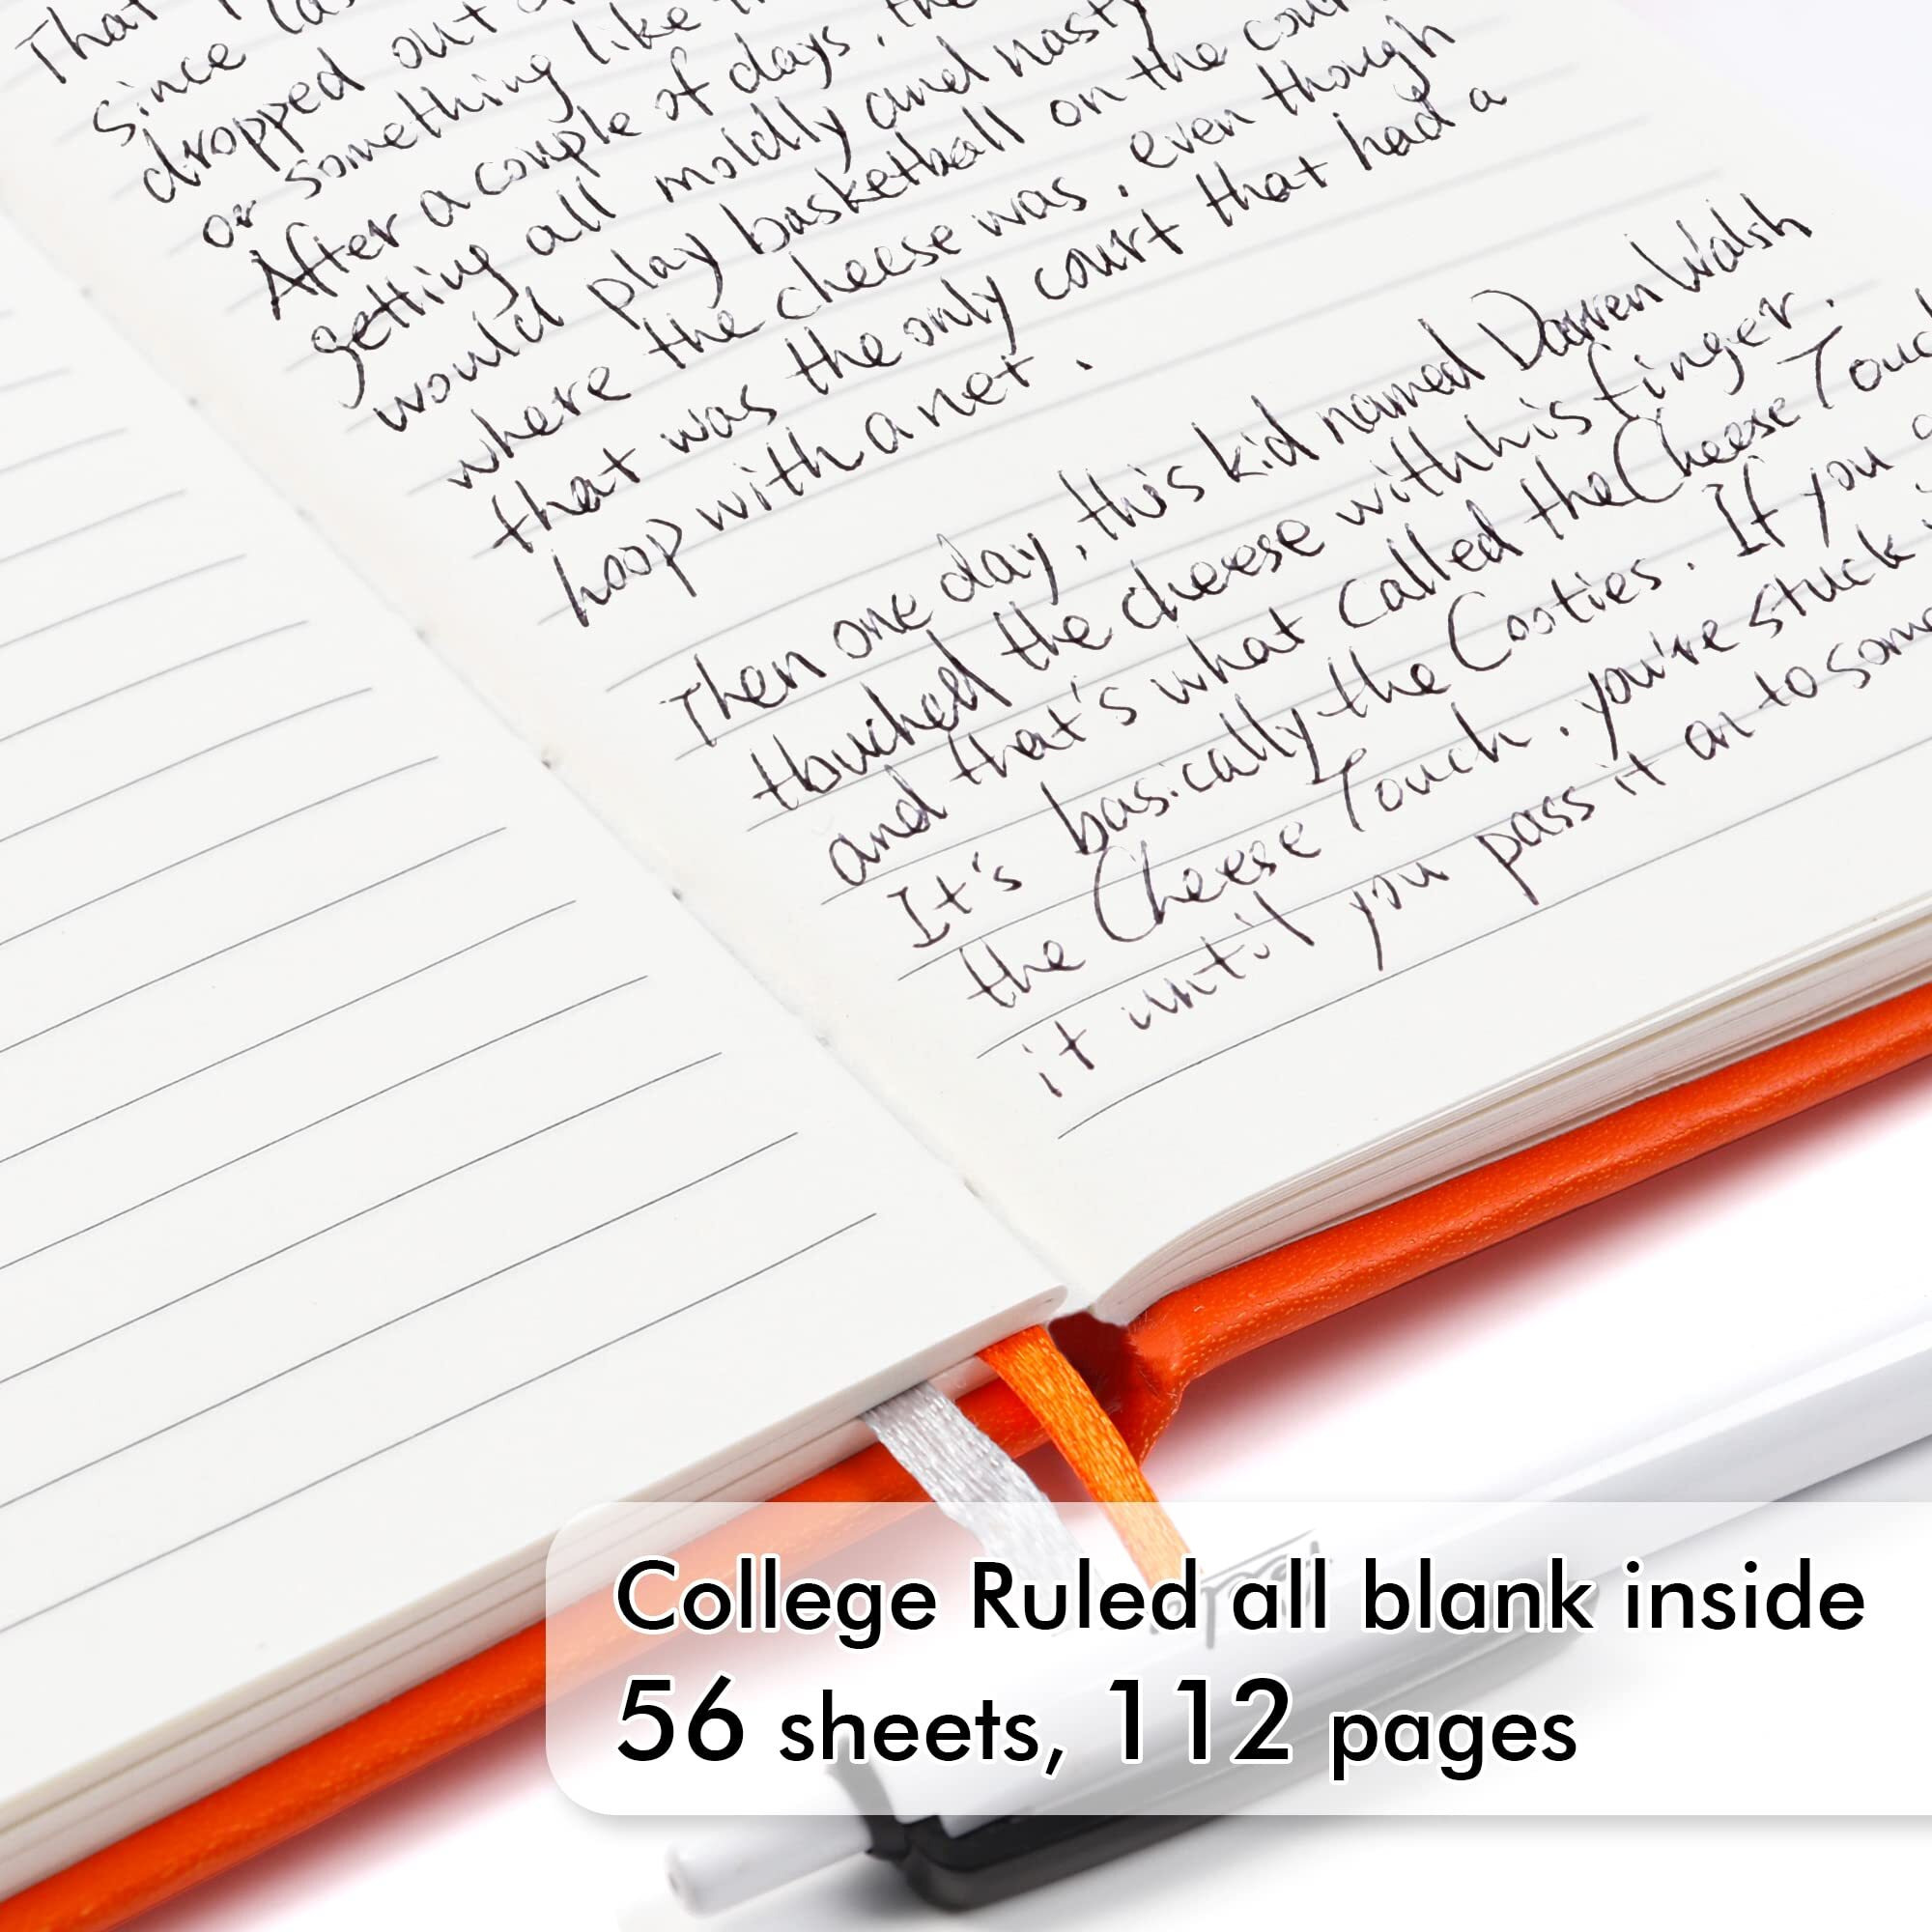 That
since
dropped out
or something like
After a couple of days, the
getting all moldly and nasty
would play basketball on the cour
where the cheese was, even though
that was the only court that had a
hoop with a net.
Then one day, this kid named Darren Walsh
touched the cheese with his finger.
and that's what called the Cheese Touc
It's basically the Cooties. If you
the Cheese Touch, you're stuck
it until you pass it on to some
College Ruled all blank inside
56 sheets, 112 pages